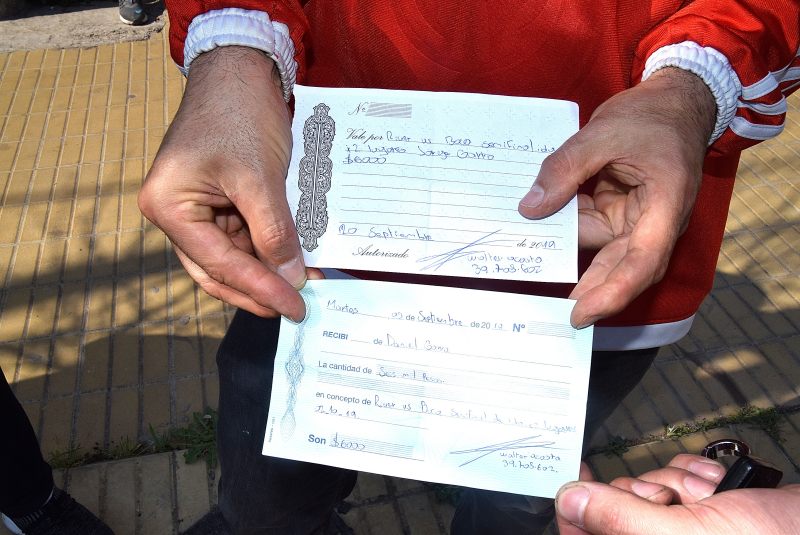 Nº
Vale por River vs Boca semifinal ida
x2 lugares Jorge
$6000
10 Septiembre de 2019
Autorizado
walter acosta
39.703.602
Martes de Septiembre de 2019 Nº
RECIBI de Daniel
La cantidad de Seis mil Pesos
en concepto de River vs Boca
19
Son $6000
walter acosta
39.703.602